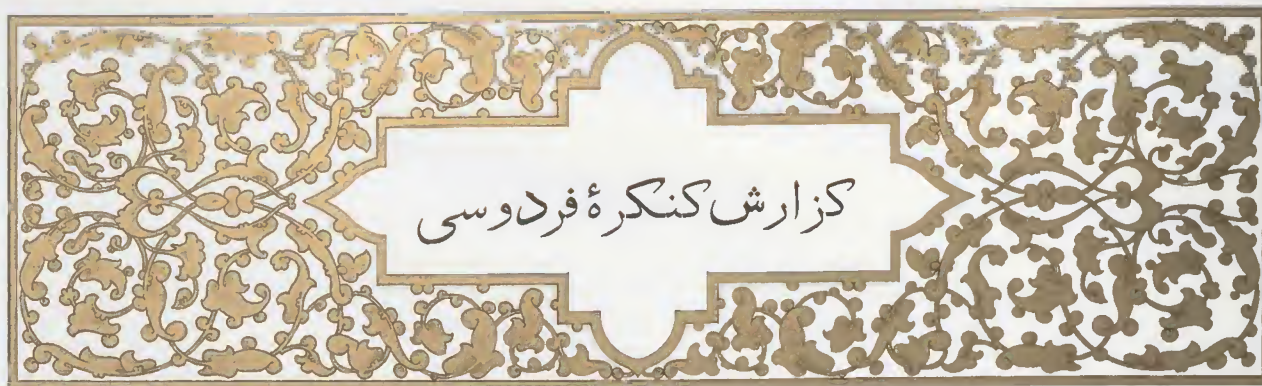 گزارش کنگرهٔ فردوسی